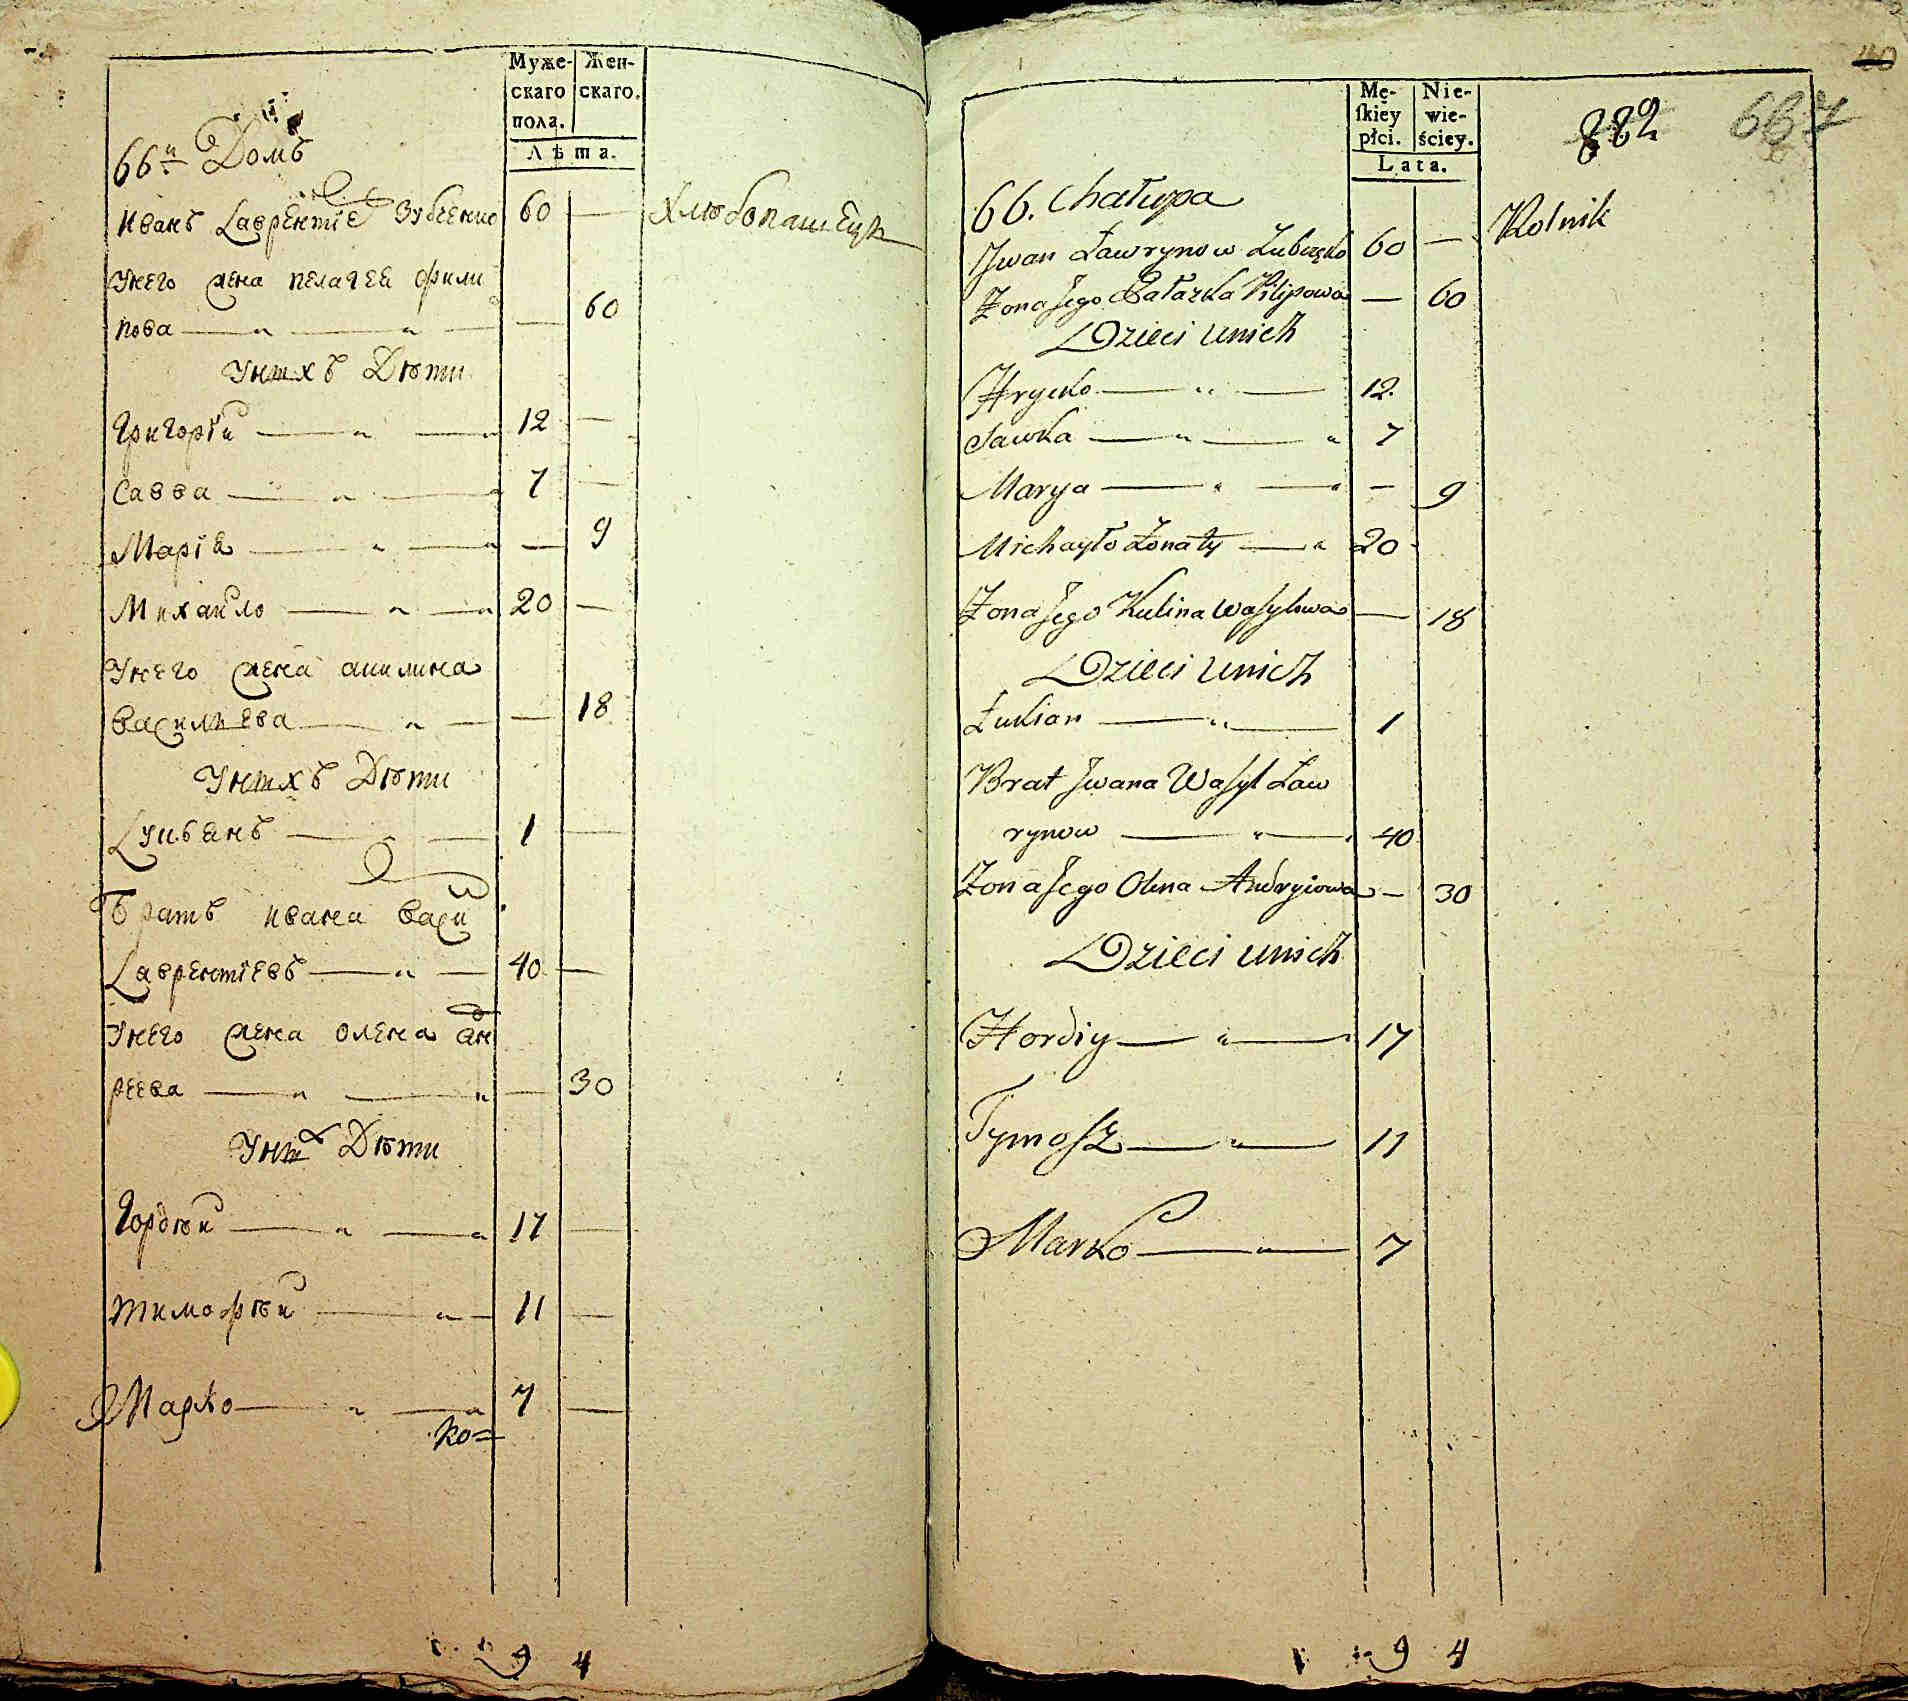 Муже-
скаго
пола.
Жен-
скаго.
Лѣта.
66й Домъ
Иванъ Лаврентіевъ Зубченко 60 —
Хлѣбопашецъ
Унего жена пелагея фили
пова — „ — „ — — 60
Унихъ Дѣти
Григорій — „ — „ 12 —
Савва — „ — „ 7 —
Маріа — „ — „ — 9
Михайло — „ — „ 20 —
Унего жена акилина
василиева — „ — — 18
Унихъ Дѣти
Лукъянъ — „ — 1 —
Братъ ивана васи
Лаврентіевъ — „ — 40 —
Унего жена олена анд
реева — „ — „ — 30
Унихъ Дѣти
Гордѣй — „ — „ 17 —
тимофѣй — „ — 11 —
Марко — „ — „ 7 —
ко=
94
Mę-
ſkiey
płci.
Nie-
wie-
ściey.
Lata.
882 667
40
66. Chałupa
Iwan Ławrynow Zubczęko 60 —
Rolnik
Żona Jego Pałazka Pilipowa — 60
Dzieci unich
Hrycko — „ — 12
Sawka — „ — „ 7
Marya — „ — „ — 9
Michayło Żonaty — „ 20
Żona Jego Kulina Waſylowa — 18
Dzieci unich
Łukian — „ — 1
Brat Iwana Waſyl Ław
rynow — „ — 40
Żona Jego Olena Andryiowa — 30
Dzieci unich
Hordiy — „ — 17
Tymoſz — „ — 11
Marko — „ — 7
94